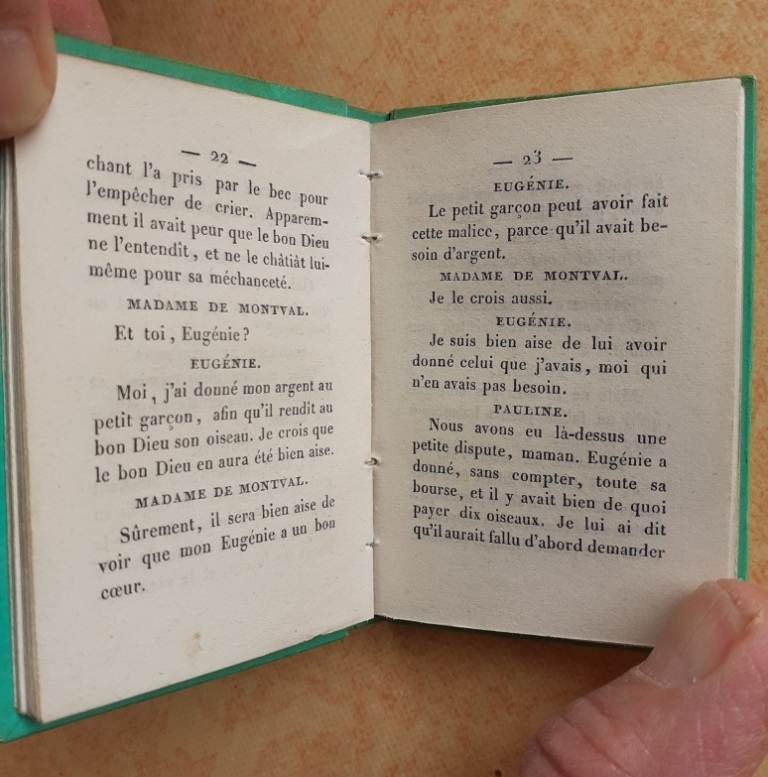 — 22 —
chant l'a pris par le bec pour
l'empêcher de crier. Apparem-
ment il avait peur que le bon Dieu
ne l'entendît, et ne le châtiât lui-
même pour sa méchanceté.
MADAME DE MONTVAL.
Et toi, Eugénie?
EUGÉNIE.
Moi, j'ai donné mon argent au
petit garçon, afin qu'il rendît au
bon Dieu son oiseau. Je crois que
le bon Dieu en aura été bien aise.
MADAME DE MONTVAL.
Sûrement, il sera bien aise de
voir que mon Eugénie a un bon
cœur.
— 23 —
EUGÉNIE.
Le petit garçon peut avoir fait
cette malice, parce qu'il avait be-
soin d'argent.
MADAME DE MONTVAL.
Je le crois aussi.
EUGÉNIE.
Je suis bien aise de lui avoir
donné celui que j'avais, moi qui
n'en avais pas besoin.
PAULINE.
Nous avons eu là-dessus une
petite dispute, maman. Eugénie a
donné, sans compter, toute sa
bourse, et il y avait bien de quoi
payer dix oiseaux. Je lui ai dit
qu'il aurait fallu d'abord demander